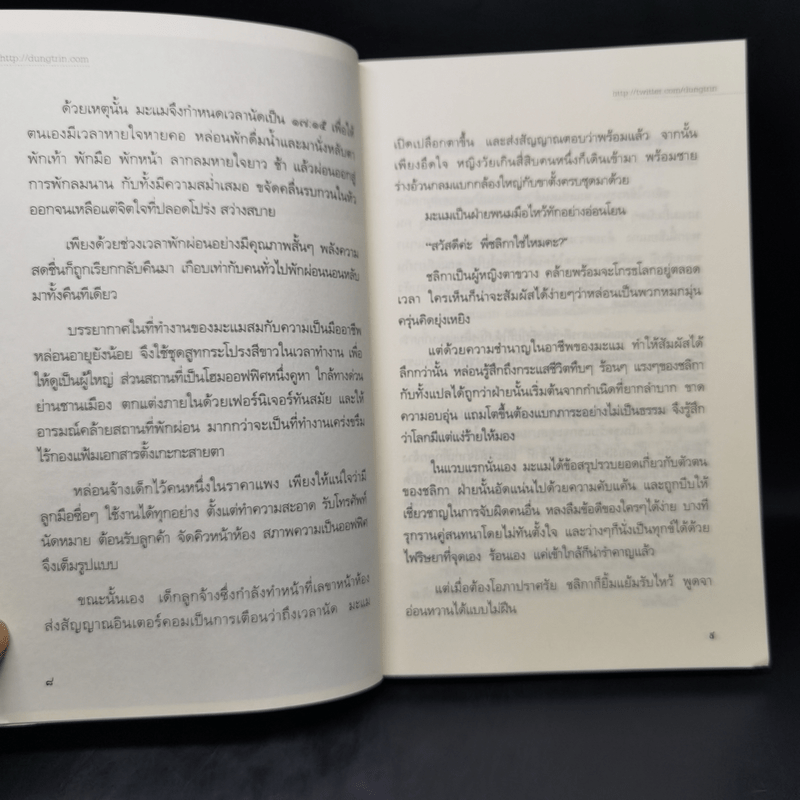 http://dungtrin.com
ด้วยเหตุนั้น มะแมจึงกำหนดเวลานัดเป็น ๑๗.๑๕ เพื่อให้
ตนเองมีเวลาหายใจหายคอ หล่อนพักดื่มน้ำและมานั่งหลับตา
พักเท้า พักมือ พักหน้า ลากลมหายใจยาว ช้า แล้วผ่อนออกสู่
การพักลมนาน กับทั้งมีความสม่ำเสมอ ขจัดคลื่นรบกวนในหัว
ออกจนเหลือแต่จิตใจที่ปลอดโปร่ง สว่างสบาย
เพียงด้วยช่วงเวลาพักผ่อนอย่างมีคุณภาพสั้นๆ พลังความ
สดชื่นก็ถูกเรียกกลับคืนมา เกือบเท่ากับคนทั่วไปพักผ่อนนอนหลับ
มาทั้งคืนทีเดียว
บรรยากาศในที่ทำงานของมะแมสมกับความเป็นมืออาชีพ
หล่อนอายุยังน้อย จึงใช้ชุดสูทกระโปรงสีขาวในเวลาทำงาน เพื่อ
ให้ดูเป็นผู้ใหญ่ ส่วนสถานที่เป็นโฮมออฟฟิศหนึ่งคูหา ใกล้ทางด่วน
ย่านชานเมือง ตกแต่งภายในด้วยเฟอร์นิเจอร์ทันสมัย และให้
อารมณ์คล้ายสถานที่พักผ่อน มากกว่าจะเป็นที่ทำงานเคร่งขรึม
ไร้กองแฟ้มเอกสารตั้งเกะกะสายตา
หล่อนจ้างเด็กไว้คนหนึ่งในราคาแพง เพียงให้แน่ใจว่ามี
ลูกมือซื่อๆ ใช้งานได้ทุกอย่าง ตั้งแต่ทำความสะอาด รับโทรศัพท์
นัดหมาย ต้อนรับลูกค้า จัดคิวหน้าห้อง สภาพความเป็นออฟฟิศ
จึงเต็มรูปแบบ
ขณะนั้นเอง เด็กลูกจ้างซึ่งกำลังทำหน้าที่เลขาหน้าห้อง
ส่งสัญญาณอินเตอร์คอมเป็นการเตือนว่าถึงเวลานัด มะแม
๘
http://twitter.com/dungtrin
เปิดเปลือกตาขึ้น และส่งสัญญาณตอบว่าพร้อมแล้ว จากนั้น
เพียงอึดใจ หญิงวัยเกินสี่สิบคนหนึ่งก็เดินเข้ามา พร้อมชาย
ร่างอ้วนกลมแบกกล้องใหญ่กับขาตั้งครบชุดมาด้วย
มะแมเป็นฝ่ายพนมมือไหว้ทักอย่างอ่อนโยน
“สวัสดีค่ะ พี่ชลิกาใช่ไหมคะ?”
ชลิกาเป็นผู้หญิงตาขวาง คล้ายพร้อมจะโกรธโลกอยู่ตลอด
เวลา ใครเห็นก็น่าจะสัมผัสได้ง่ายๆว่าหล่อนเป็นพวกหมกมุ่น
ครุ่นคิดยุ่งเหยิง
แต่ด้วยความชำนาญในอาชีพของมะแม ทำให้สัมผัสได้
ลึกกว่านั้น หล่อนรู้สึกถึงกระแสชีวิตทึบๆ ร้อนๆ แรงๆของชลิกา
กับทั้งแปลได้ถูกว่าฝ่ายนั้นเริ่มต้นจากกำเนิดที่ยากลำบาก ขาด
ความอบอุ่น แถมโตขึ้นต้องแบกภาระอย่างไม่เป็นธรรม จึงรู้สึก
ว่าโลกมีแต่แง่ร้ายให้มอง
ในแวบแรกนั่นเอง มะแมได้ข้อสรุปรวบยอดเกี่ยวกับตัวตน
ของชลิกา ฝ่ายนั้นอัดแน่นไปด้วยความคับแค้น และถูกบีบให้
เชี่ยวชาญในการจับผิดคนอื่น หลงลืมข้อดีของใครๆได้ง่าย บางที
รุกรานคู่สนทนาโดยไม่ทันตั้งใจ และว่างๆก็นั่งเป็นทุกข์ได้ด้วย
ไฟริษยาที่จุดเอง ร้อนเอง แค่เข้าใกล้ก็น่ารำคาญแล้ว
แต่เมื่อต้องโอภาปราศรัย ชลิกาก็ยิ้มแย้มรับไหว้ พูดจา
อ่อนหวานได้แบบไม่ฝืน
๙